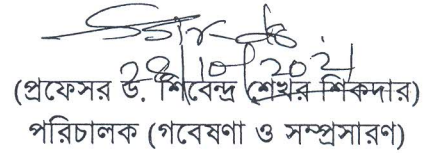 28/10/2021
(প্রফেসর ড. শিবেন্দ্র শেখর শিকদার)
পরিচালক (গবেষণা ও সম্প্রসারণ)